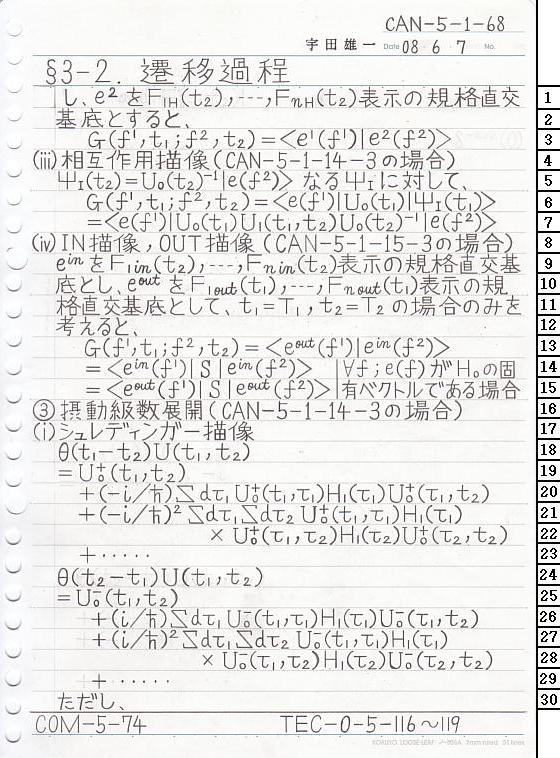 CAN-5-1-68
宇田雄一 Date 08 6 7 No.
§3-2. 遷移過程
し、e²をF₁H(t₂),---,FnH(t₂)表示の規格直交
基底とすると、
G(f¹,t₁;f²,t₂)=<e¹(f¹)|e²(f²)>
(iii)相互作用描像(CAN-5-1-14-3の場合)
ΨI(t₂)=U₀(t₂)⁻¹|e(f²)> なるΨIに対して、
G(f¹,t₁;f²,t₂)=<e(f¹)|U₀(t₁)|ΨI(t₁)>
=<e(f¹)|U₀(t₁)UI(t₁,t₂)U₀(t₂)⁻¹|e(f²)>
(iv)IN描像,OUT描像(CAN-5-1-15-3の場合)
eⁱⁿをF₁in(t₂),---,Fnin(t₂)表示の規格直交基
底とし、eᵒᵘᵗをF₁out(t₁),---,Fnout(t₁)表示の規
格直交基底として、t₁=T₁,t₂=T₂の場合のみを
考えると、
G(f¹,t₁;f²,t₂)=<eᵒᵘᵗ(f¹)|eⁱⁿ(f²)>
=<eⁱⁿ(f¹)|S|eⁱⁿ(f²)> |∀f;e(f)がH₀の固
=<eᵒᵘᵗ(f¹)|S|eᵒᵘᵗ(f²)>|有ベクトルである場合
③摂動級数展開(CAN-5-1-14-3の場合)
(i)シュレディンガー描像
θ(t₁-t₂)U(t₁,t₂)
=U₀⁺(t₁,t₂)
+(-i/ħ)∑dτ₁U₀⁺(t₁,τ₁)H₁(τ₁)U₀⁺(τ₁,t₂)
+(-i/ħ)²∑dτ₁∑dτ₂U₀⁺(t₁,τ₁)H₁(τ₁)
×U₀⁺(τ₁,τ₂)H₁(τ₂)U₀⁺(τ₂,t₂)
+·····
θ(t₂-t₁)U(t₁,t₂)
=U₀⁻(t₁,t₂)
+(i/ħ)∑dτ₁U₀⁻(t₁,τ₁)H₁(τ₁)U₀⁻(τ₁,t₂)
+(i/ħ)²∑dτ₁∑dτ₂U₀⁻(t₁,τ₁)H₁(τ₁)
×U₀⁻(τ₁,τ₂)H₁(τ₂)U₀⁻(τ₂,t₂)
+······
ただし、
COM-5-74 TEC-0-5-116〜119
KOKUYO LOOSE-LEAF ノ-836A 7mm ruled 31 lines
1
2
3
4
5
6
7
8
9
10
11
12
13
14
15
16
17
18
19
20
21
22
23
24
25
26
27
28
29
30